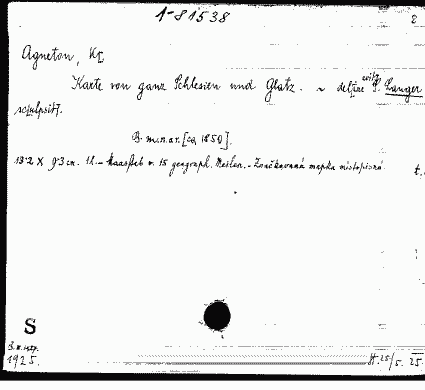 1-81538
2
Agneton, Kl
Karte von ganz Schlesien und Glatz. ~ del[ine]avit, S. Langer
sculpsit].
B.m.n.a r. [ca 1850].
13·2 X 9·3 cm. 1 l. - Maasstab v. 15 geograph. Meilen. - Značkovaná mapka místopisná.
S
1925.
H. 25/5. 25.